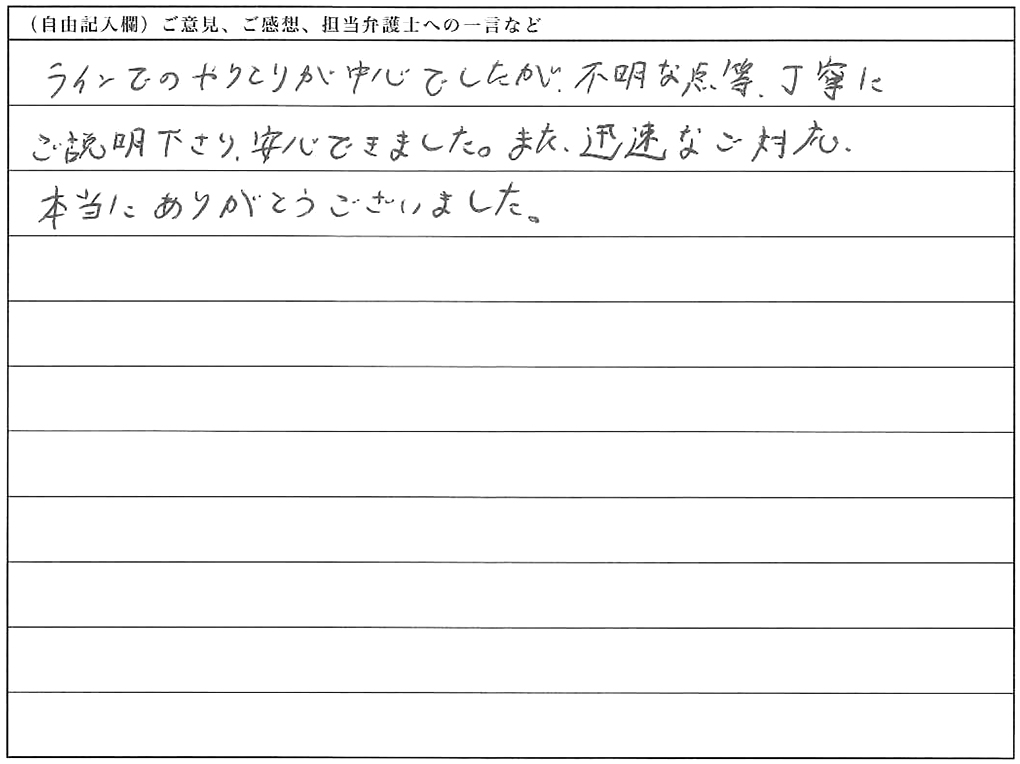 （自由記入欄）ご意見、ご感想、担当弁護士への一言など
ラインでのやりとりが中心でしたが、不明な点等、丁寧に
ご説明下さり、安心できました。また、迅速なご対応、
本当にありがとうございました。